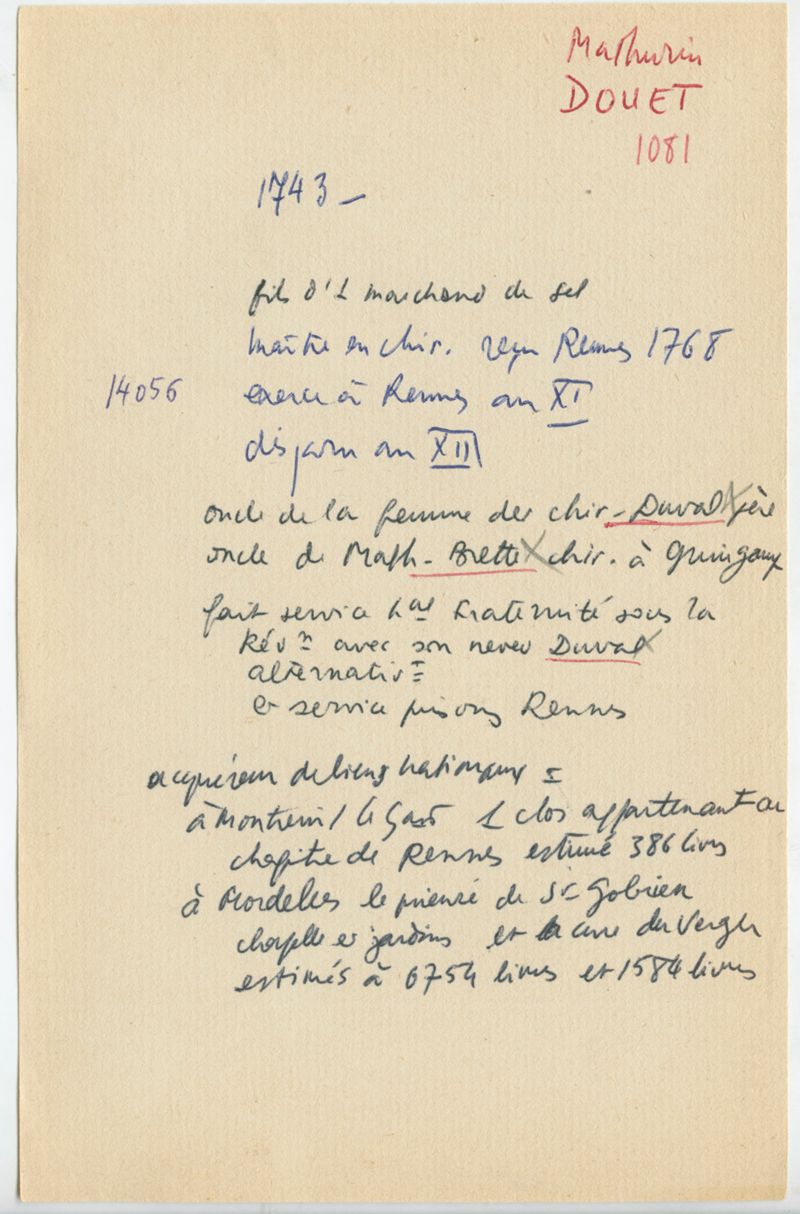 Mathurin
DOUET
1081
1743 –
fils d'1 marchand de sel
maître en chir. reçu Rennes 1768
14056 exerce à Rennes an XI
disparu an XII
oncle de la femme der chir. Duval père
oncle de Math. Brette chir. à Guingamp
fait service hal Fraternité sous la
Révn avec son neveu Duval
alternativt
& service prisons Rennes
acquéreur de biens nationaux =
à Montreuil le Gast 1 clos appartenant au
chapitre de Rennes estimé 386 livres
à Mordelles le prieuré de St Gobrien
chapelle et jardins et la cure du Verger
estimés à 6754 livres et 1584 livres